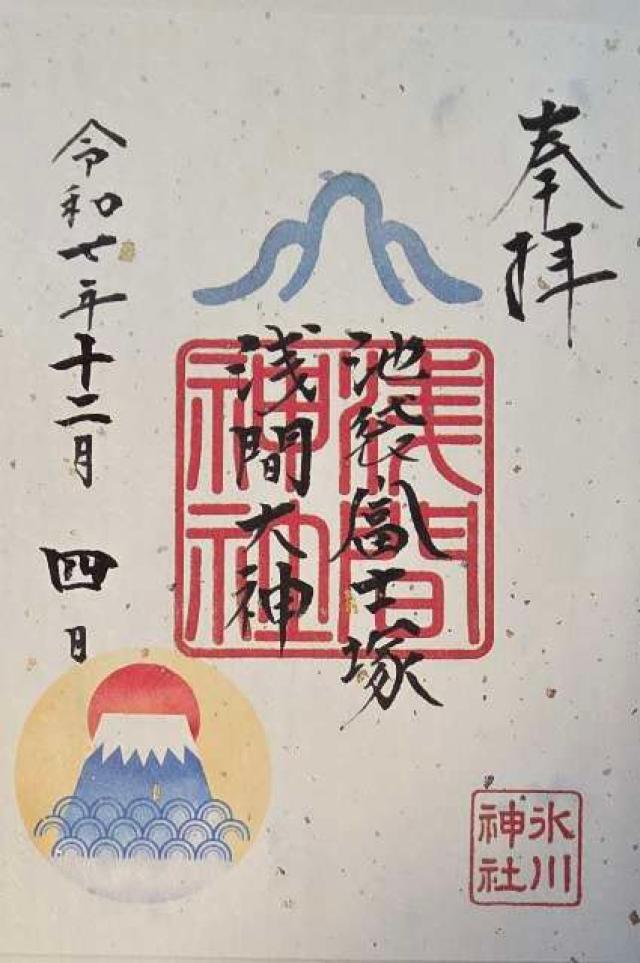 奉拝
池袋富士塚
浅間大神
浅間神社
令和七年十二月四日
氷川神社